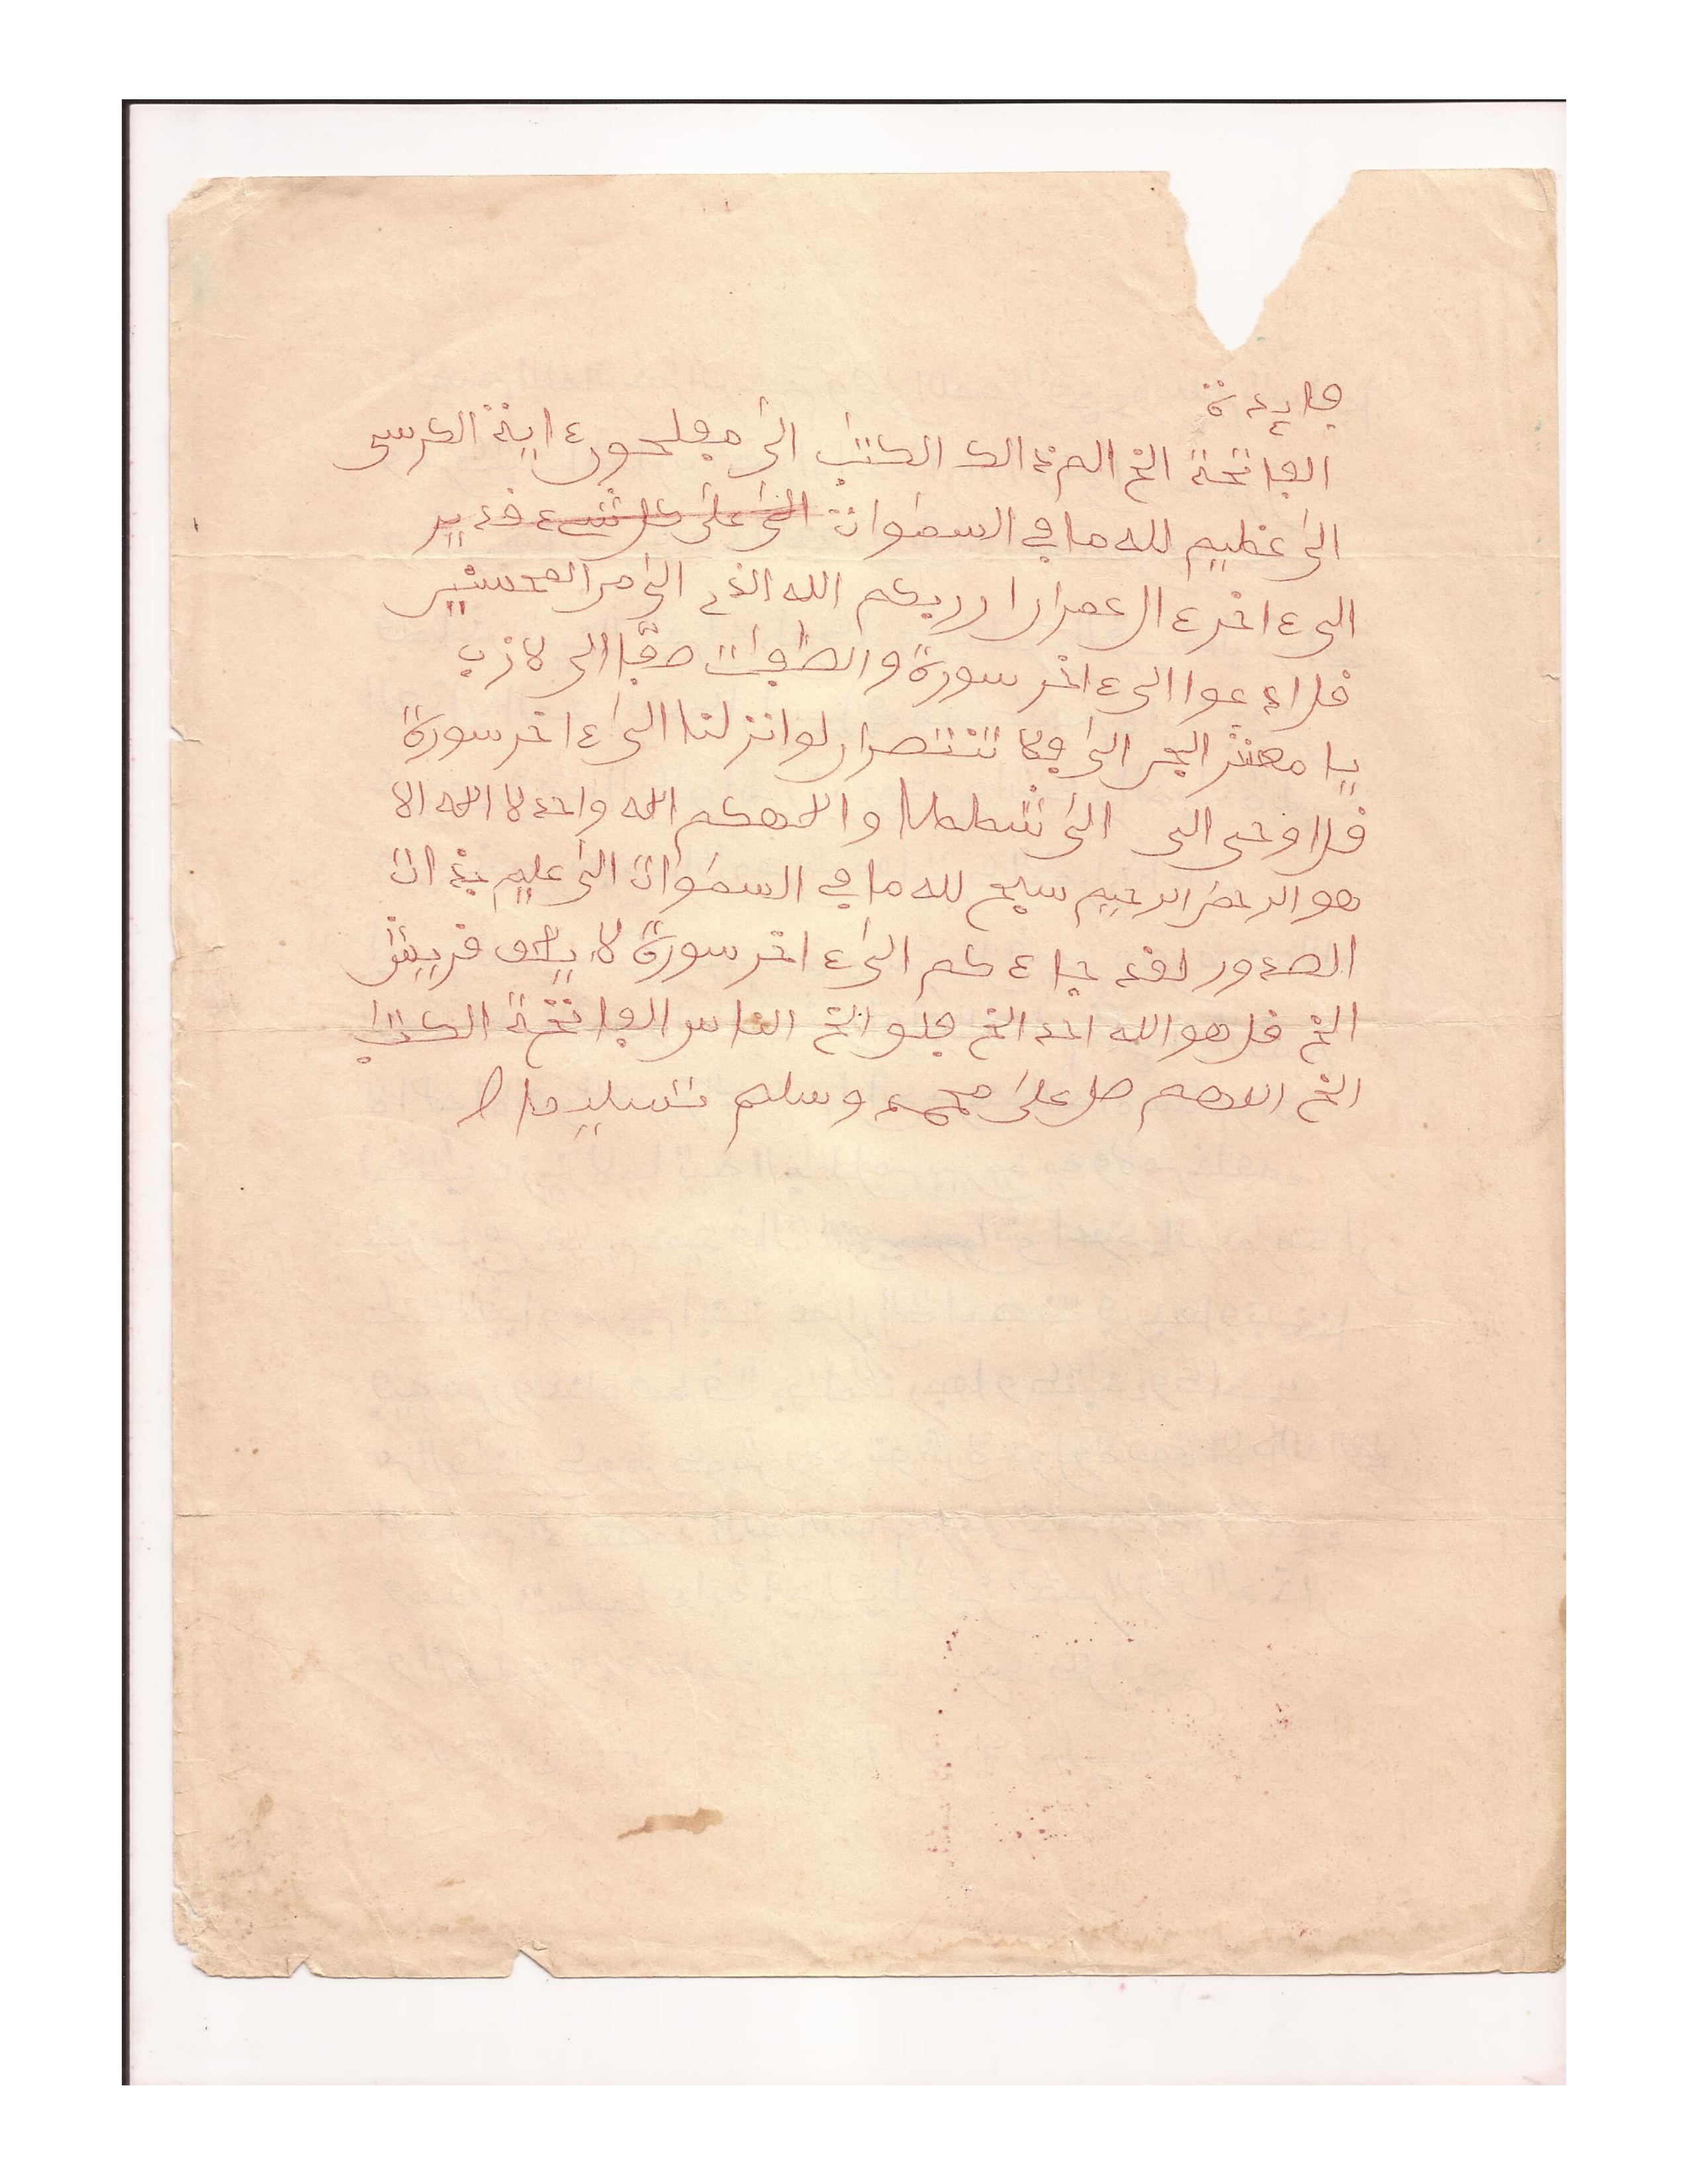 فايدة
الفاتحة الخ الم ذالك الكتب الى مفلحون ءاية الكرسى
الى عظيم لله ما في السموات الخ على كل شيء قدير
الى ءاخر ءال عمران ان ربكم الله الذي الى من المحسنين
قل ادعوا الى ءاخر سورة والصفت صفا الى لازب
يا معشر الجن الى فلا تنتصران لو انزلنا الى ءاخر سورة
قل اوحى الى الى شططا والهكم اله واحد لا اله الا
هو الرحمن الرحيم سبح لله ما في السموات الى عليم بذات
الصدور لقد جاءكم الى ءاخر سورة لايلف قريش
الخ قل هو الله احد الخ فلق الخ الناس الفاتحة الكتب
الخ اللهم صل على محمد وسلم تسليما